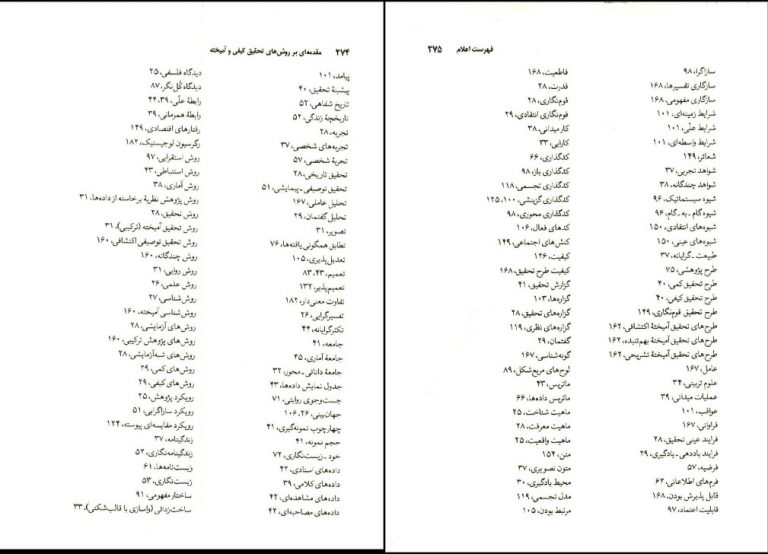 ۲۷۴ مقدمه‌ای بر روش‌های تحقیق کیفی و آمیخته
پیامد، ۱۰۱
پیشینهٔ تحقیق، ۴۰
تاریخ شفاهی، ۵۲
تاریخچهٔ زندگی، ۵۲
تجربه، ۲۸
تجربه‌های شخصی، ۳۷
تجربهٔ شخصی، ۵۷
تحقیق تاریخی، ۲۸
تحقیق توصیفی ـ پیمایشی، ۵۱
تحلیل عاملی، ۱۶۷
تحلیل گفتمان، ۲۹
تصویر، ۳۱
تطابق همگونی یافته‌ها، ۷۶
تعدیل‌پذیری، ۱۰۵
تعمیم، ۴۳، ۸۳
تعمیم‌پذیر، ۱۳۲
تفاوت معنی‌دار، ۱۸۲
تفسیرگرایی، ۲۶
تکثرگرایانه، ۴۴
جامعه، ۴۱
جامعهٔ آماری، ۴۵
جامعهٔ دانائی ـ محور، ۳۲
جدول نمایش داده‌ها، ۴۳
جست‌وجوی روایتی، ۷۱
جهان‌بینی، ۲۶، ۱۰۶
چهارچوب نمونه‌گیری، ۴۱
حجم نمونه، ۴۱
خود ـ زیست‌نگاری، ۷۲
داده‌های اسنادی، ۴۲
داده‌های کلامی، ۳۹
داده‌های مشاهده‌ای، ۴۲
داده‌های مصاحبه‌ای، ۴۲
دیدگاه فلسفی، ۲۵
دیدگاه کُل‌نگر، ۸۷
رابطهٔ علّی، ۳۹، ۴۴
رابطهٔ همزمانی، ۳۹
رفتارهای اقتصادی، ۱۴۹
رگرسیون لوجیستیک، ۱۸۲
روش استقرایی، ۹۷
روش استنباطی، ۴۳
روش آماری، ۳۸
روش پژوهش نظریهٔ برخاسته از داده‌ها، ۳۱
روش تحقیق، ۲۸
روش تحقیق آمیخته (ترکیبی)، ۳۱
روش تحقیق توصیفی اکتشافی، ۱۶۰
روش چندگانه، ۱۶۰
روش روایی، ۳۱
روش علمی، ۲۶
روش‌شناسی، ۲۷
روش‌شناسی آمیخته، ۱۶۰
روش‌های آزمایشی، ۲۸
روش‌های پژوهش ترکیبی، ۱۶۰
روش‌های شبه‌آزمایشی، ۲۸
روش‌های کمی، ۲۹
روش‌های کیفی، ۲۹
رویکرد پژوهش، ۲۵
رویکرد سازاگرایی، ۵۱
رویکرد مقایسه‌ای پیوسته، ۱۲۴
زندگینامه، ۳۷
زندگینامه‌نگاری، ۵۲
زیست‌نامه‌ها، ۶۱
زیست‌نگاری، ۵۳
ساختار مفهومی، ۹۱
ساخت‌زدائی (واسازی یا قالب‌شکنی)، ۳۳
فهرست اعلام ۲۷۵
سازاگرا، ۹۸
سازگاری تفسیرها، ۱۶۸
سازگاری مفهومی، ۱۶۸
شرایط زمینه‌ای، ۱۰۱
شرایط علّی، ۱۰۱
شرایط واسطه‌ای، ۱۰۱
شعائر، ۱۴۹
شواهد تجربی، ۳۷
شواهد چندگانه، ۳۸
شیوه سیستماتیک، ۹۶
شیوه گام ـ به ـ گام، ۹۶
شیوه‌های انتقادی، ۱۵۰
شیوه‌های عینی، ۱۵۰
طبیعت ـ گرایانه، ۳۷
طرح پژوهشی، ۷۵
طرح تحقیق کمی، ۴۰
طرح تحقیق کیفی، ۴۰
طرح تحقیق قوم‌نگاری، ۱۴۹
طرح‌های تحقیق آمیختهٔ اکتشافی، ۱۶۲
طرح‌های تحقیق آمیختهٔ بهم‌تنیده، ۱۶۲
طرح‌های تحقیق آمیختهٔ تشریحی، ۱۶۲
عامل، ۱۶۷
علوم تربیتی، ۳۴
عملیات میدانی، ۳۹
عواقب، ۱۰۱
فراوانی، ۱۶۷
فرایند عینی تحقیق، ۲۸
فرایند یاددهی ـ یادگیری، ۲۹
فرضیه، ۵۷
فرم‌های اطلاعاتی، ۶۲
قابل پذیرش بودن، ۱۶۸
قابلیت اعتماد، ۹۷
قاطعیت، ۱۶۸
قدرت، ۲۸
قوم‌نگاری، ۲۸
قوم‌نگاری انتقادی، ۲۹
کار میدانی، ۳۸
کارایی، ۳۳
کدگذاری، ۶۶
کدگذاری باز، ۹۸
کدگذاری تجسمی، ۱۱۸
کدگذاری گزینشی، ۱۰۰، ۱۲۵
کدگذاری محوری، ۹۸
کدهای فعال، ۱۰۶
کنش‌های اجتماعی، ۱۴۹
کیفیت، ۱۲۶
کیفیت طرح تحقیق، ۱۶۸
گزارش تحقیق، ۴۱
گزاره‌ها، ۱۰۳
گزاره‌های تحقیق، ۲۸
گزاره‌های نظری، ۱۱۹
گفتمان، ۲۹
گونه‌شناسی، ۱۶۷
لوح‌های مربع‌شکل، ۸۹
ماتریس، ۴۳
ماتریس داده‌ها، ۶۶
ماهیت شناخت، ۲۵
ماهیت معرفت، ۲۸
ماهیت واقعیت، ۲۵
متن، ۱۵۴
متون تصویری، ۳۷
محیط یادگیری، ۳۰
مدل تجسمی، ۱۱۹
مرتبط بودن، ۱۰۵